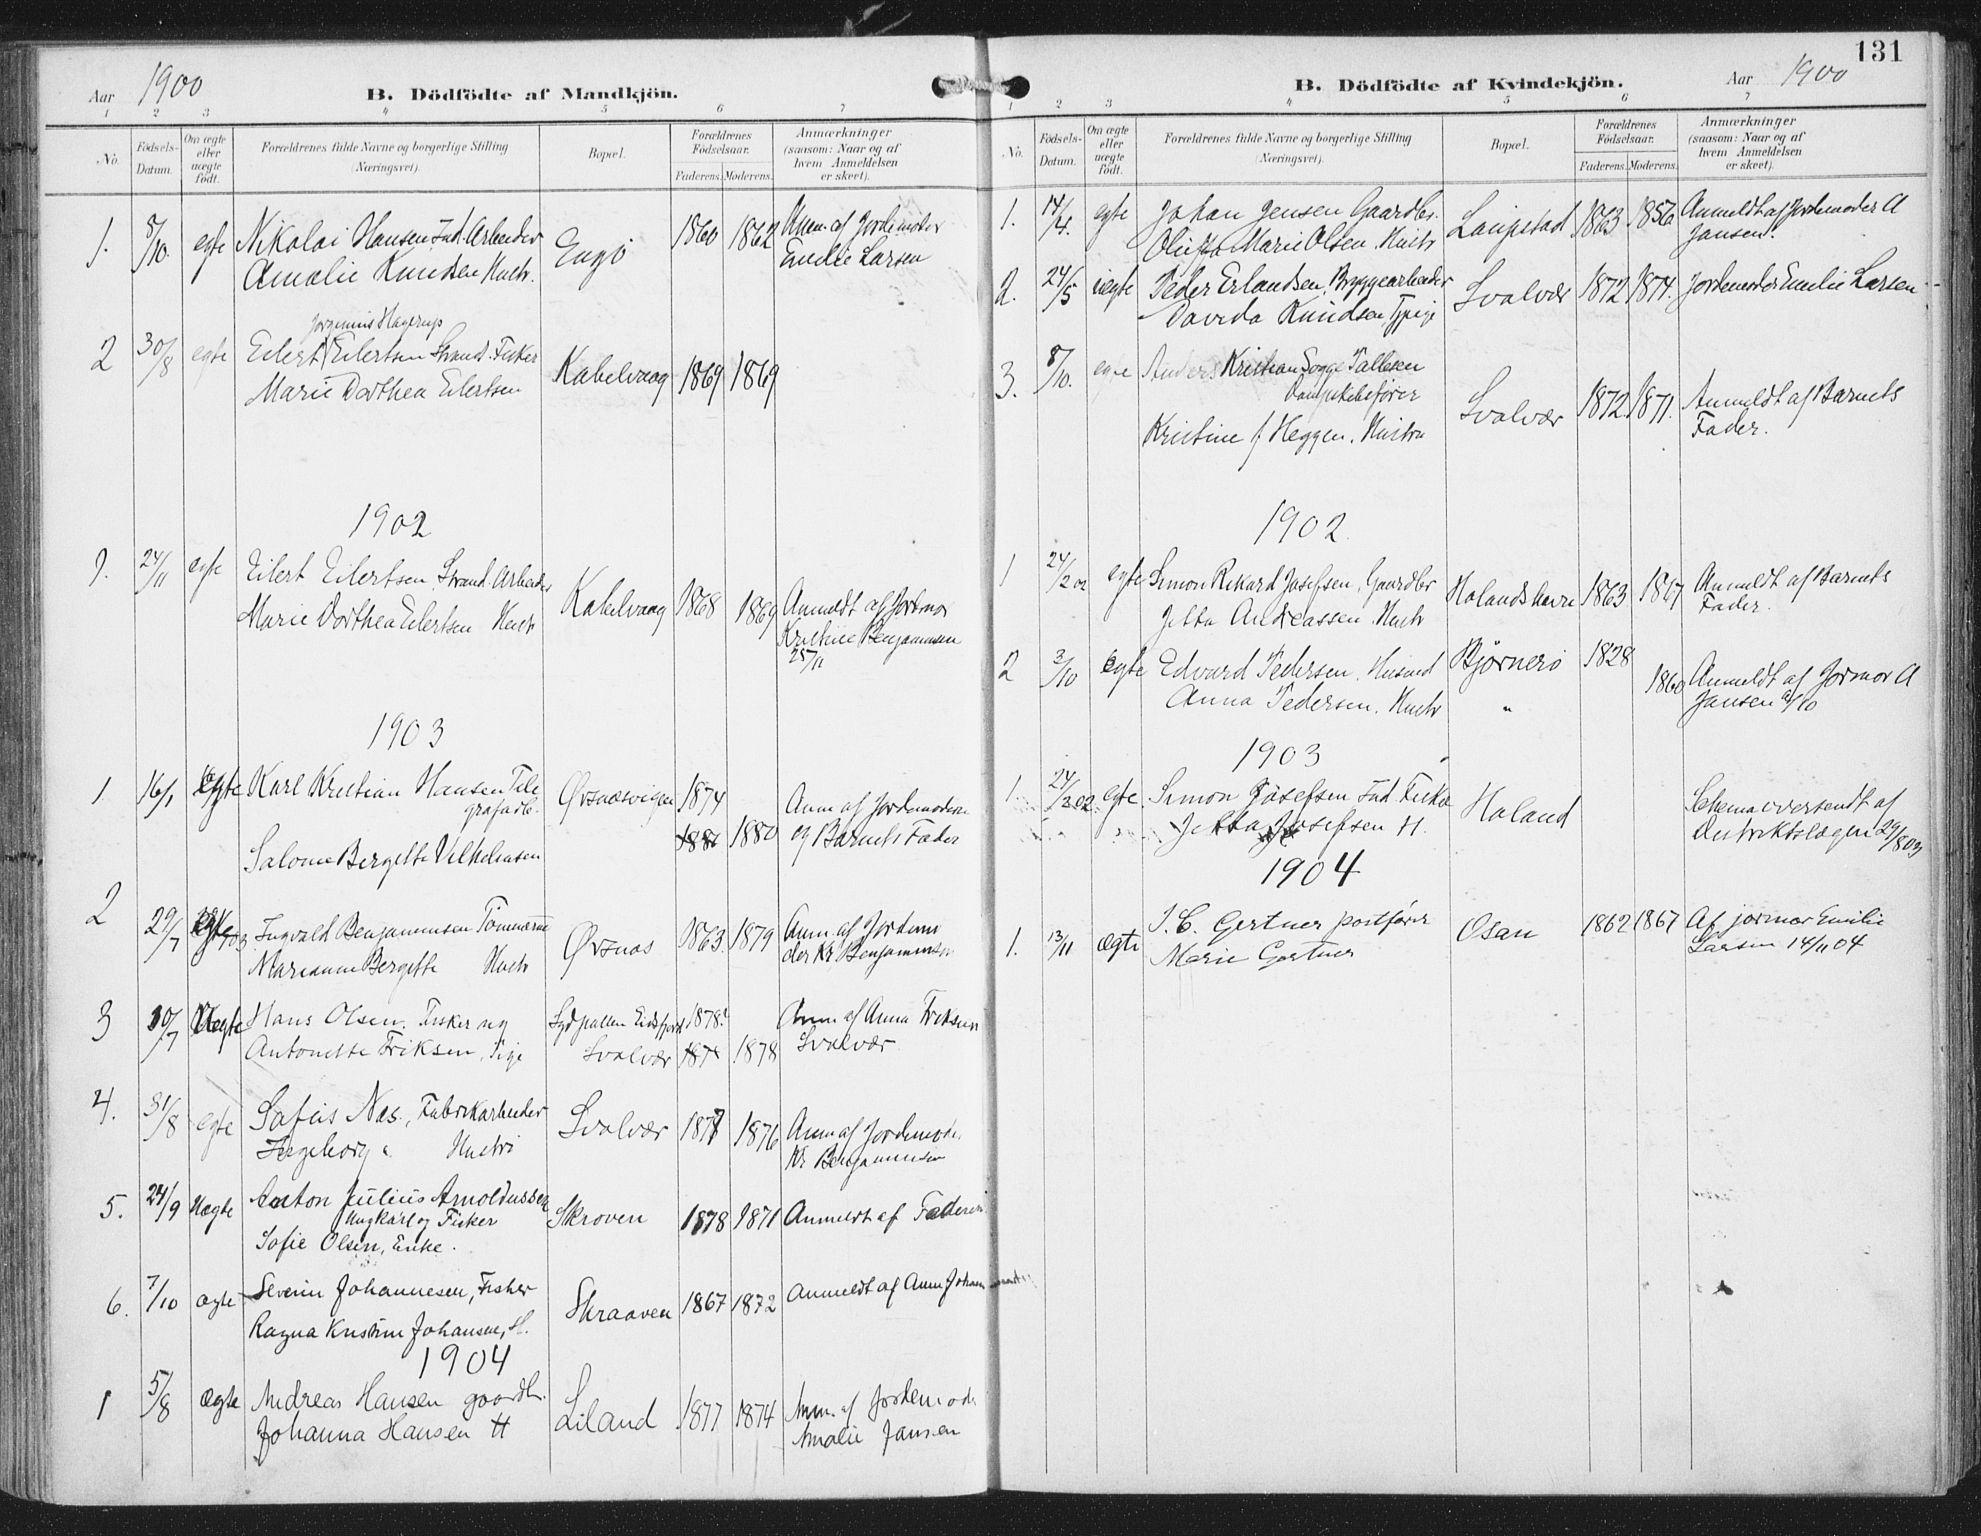 Aar 1900
B. Dödfödte af Mandkjön.
1 2 3 4 5 6 7
No.
Födsels-Datum.
Om ægte eller uægte født.
Forældrenes fulde Navne og borgerlige Stilling (Næringsvei).
Bopæl.
Forældrenes Födselsaar.
Faderens. Moderens.
Anmærkninger (saasom: Naar og af hvem Anmeldelsen er skeet).
1. 5/10. egte Nikolai Hansen Ind. Arbeider Engö 1860 1862 Anm. af Jordemoder
Amalie Knudsen Hustr. Emelie Larsen
Jorgenius Hagerup
2 30/8 egte Eilert Eilertsen Strand. Fisker Kabelvaag 1869 1869
Marie Dorthea Eilertsen
1902
1. 24/11 egte Eilert Eilertsen Strand. Arbeider Kabelvaag 1868 1869 Anmeldt af Jordmor
Marie Dorthea Eilertsen Hustr Kristine Benjaminsen
25/11
1903
1 16/1 egte Karl Kristian Hansen Tele Ørsnæsvigen 1874 Anm af Jordemoderen
grafarb. 1881 1880 og Barnets Fader
Salome Bergette Vilhelmsen
2 29/7 Ingvald Benjaminsen Tömmerm Ørsnæs 1863 1879 Anm. af Jordemo
Marianne Bergette Hustr der Kr Benjaminsen
3 30/7 Uegte Hans Olsen. Fisker og Sydpollen Eidsfjord 1878? Anm af Anna Eriksen
Antonette Eriksen, Pige Svolvær 1878 Svolvær
4. 31/8 egte Sofus Næs, Fabrikarbeider Svolvær 1877 1876 Anm af Jordemode.
Ingeborg " Hustri Kr Benjaminsen
5. 24/9 Uegte Anton Julius Arnoldussen Skroven 1878 1871 Anmeldt af Faderen
Ungkarl og Fisker
Sofie Olsen, Enke.
6. 7/10 ægte Severin Johannesen, Fisker Skraaven 1867 1872 Anmeldt af Anna
Ragna Kristine Johansen, H.
1904
1 5/8 ægte Andreas Hansen gaardbr. Liland 1877 1874 Anm. af Jordemode
Johanna Hansen H Amalie Jansen
131
B. Dödfödte af Kvindekjön.
Aar 1900
1 2 3 4 5 6 7
No.
Födsels-Datum.
Om ægte eller uægte födt.
Forældrenes fulde Navne og borgerlige Stilling (Næringsvei).
Bopæl.
Forældrenes Födselsaar.
Faderens. Moderens.
Anmærkninger (saasom: Naar og af hvem Anmeldelsen er skeet).
1. 14/4. egte Johan Jensen Gaardbr. Laupstad 1863 1856 Anmeldt af Jordemoder A
Marie Olsen. Hustr Jansen.
2. 24/5 uegte Peder Erlandsen, Bryggearbeider Svolvær 1872 1874. Jordemoder Emelie Larsen
Davida Knudsen, Tjpige
3. 8/10. egte Anders Kristian Sogge Tallesen
Dampskibsfører Svolvær 1872. 1871. Anmeldt af Barnets
Kristine f Heggen. Hustru Fader.
1902
1 24/2 02 egte Simon Rikard Josefsen, Gaardbr Holandshavn 1863 1867 Anmeldt af Barnets
Jetta Andreassen. Hustr Fader.
2 3/10 egte Edvard Pedersen. Husmd Bjørnerö 1828 1860 Anmeldt af Jormor A
Anna Pedersen. Hustr " Jansen
1903
1. 24/2 02. egte. Simon Josefsen Ind. Fisker Holand Schema oversendt af
Jetta Josefsen H. Distriktslægen 29/8 03
1904
1. 13/11 ægte J. C. Gertner postfører Osan 1862 1867 Af jormor Emilie
Marie Gertner Larsen 14/11 04